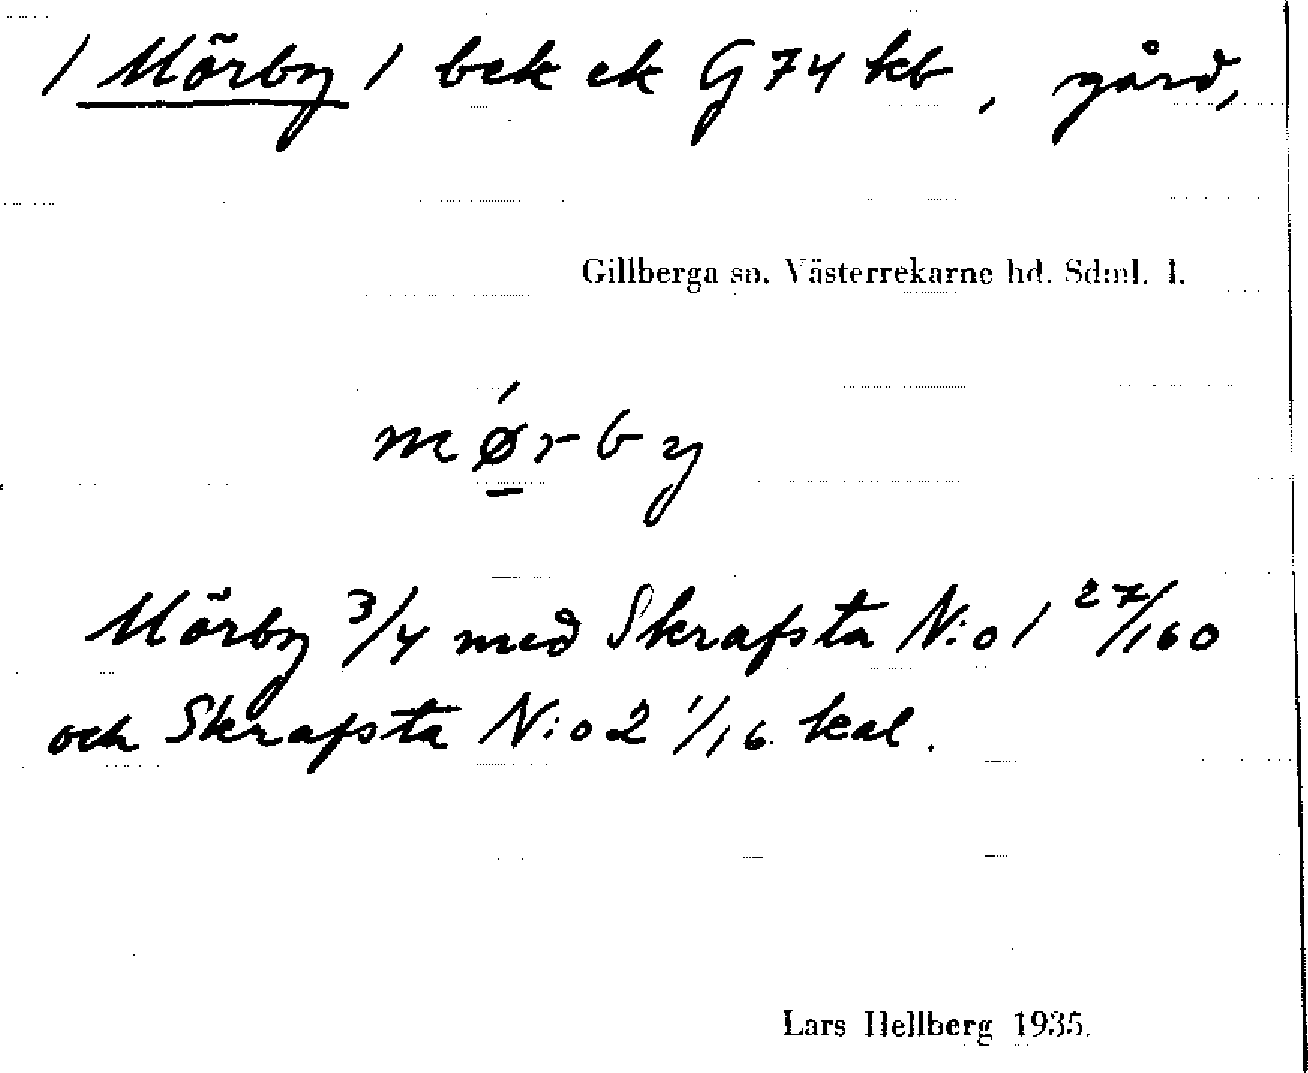 / Mörby / bek ek G 74 kb, gård,
Gillberga sn. Västerrekarne hd. Sdml. l.
mǿrby
Mörby 3/4 med Skrafsta N:o 1 27/160
och Skrafsta N:o 2 1/16 kal.
Lars Hellberg 1935.